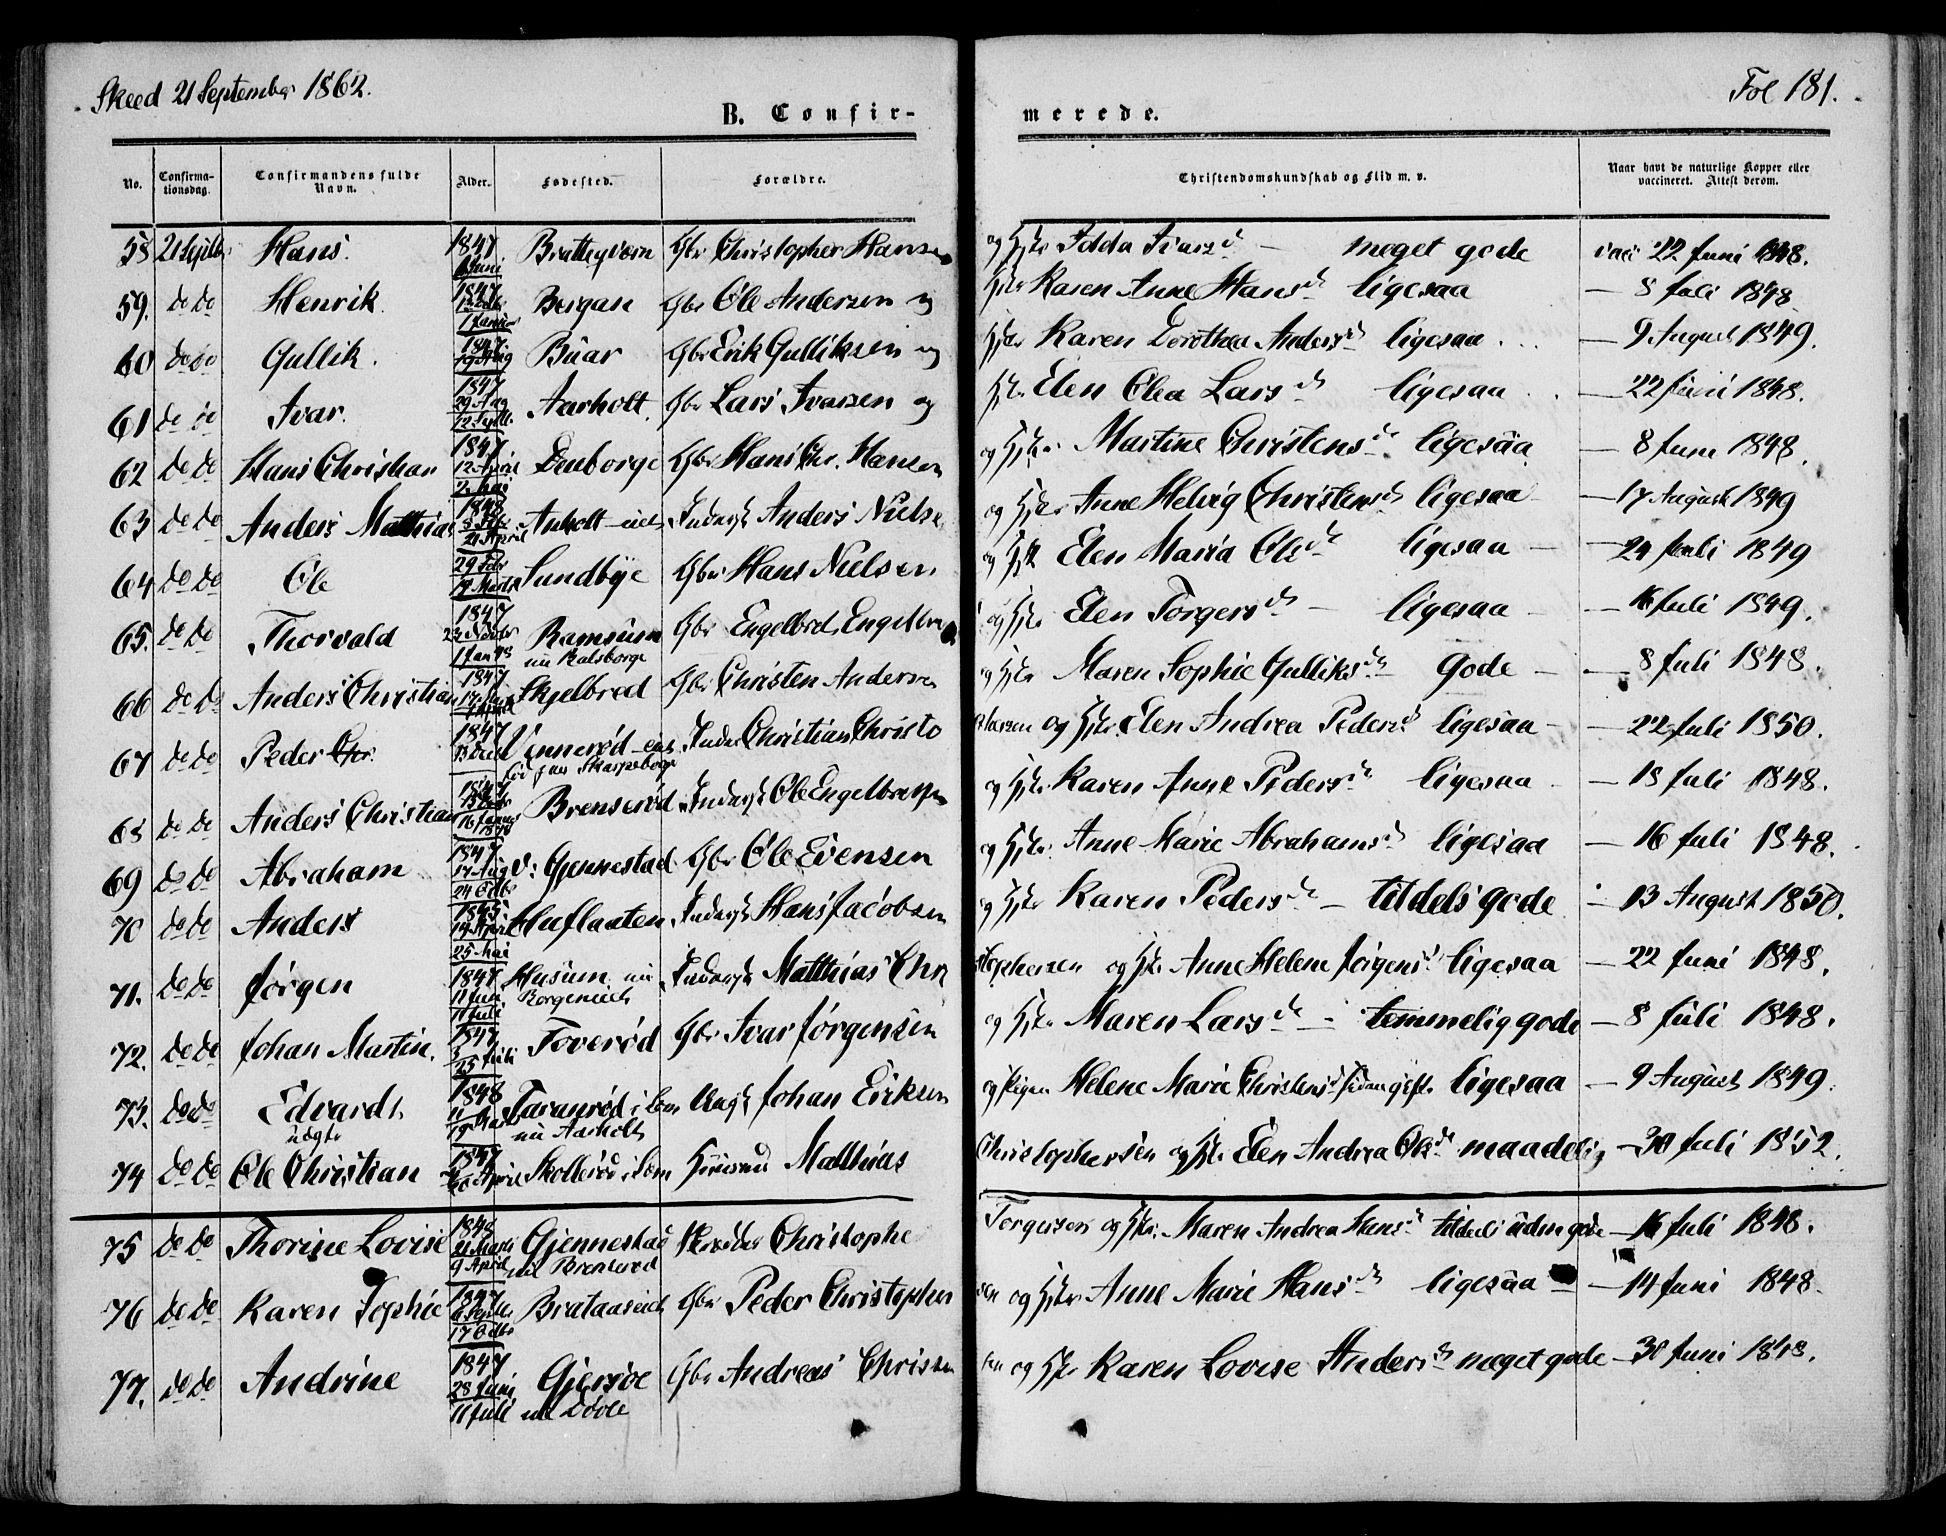 Skeed 21 September 1862.
Fol 181.
B. Confir-
merede.
No.
Confirma-
tionsdag.
Confirmandens fulde
Navn.
Alder.
Fødested.
Forældre.
Christendomskundskab og Flid m. v.
Naar havt de naturlige Kopper eller
vaccineret. Attest derom.
58 21 Septbr Hans. 1847 Gbr Christopher Hansen og Hstr Idda Ivarsd - meget gode vacc 22 Juni 1848.
59. do do Henrik. 1847 Bergan Gbr Ole Andersen og Hstr Karen Anne Hansd ligesaa - 8 Juli 1848
60 do do Gullik. 1847 Buar Gbr Erik Gulliksen og Hstr Karen Dorothea Andersd ligesaa - 9 August 1849.
61 do do Ivar. 1847 29 Aug Aarholt. Gbr Lars Ivarsen og Hstr Elen Olea Larsd ligesaa - 22 Juni 1848.
62 do do Hans Christian 1847 12 April 2 Mai Gbr Hans Chr. Hansen og Hstr Martine Christensd ligesaa - 8 Juni 1848.
63 do do Anders Matthias 1848 21 April Inderst Anders Nielse og Hstr Anne Helvig Christensd ligesaa - 17 August 1849
64 do do Ole 29 Febr Sundbye Gbr Hans Nielsen og Hstr Elen Maria Olsd ligesaa - 24 Juli 1849
65. do do Thorvald 1847 1 Jan 48 Ramsum nu Gbr Engelbret Engelbre og Hstr Elen Torgersd - ligesaa - 16 Juli 1849.
66 do do Anders Christian 1847 Skjelbred Gbr Christen Andersen og Hstr Maren Sophie Gulliksd - Gode - 8 Juli 1848.
67 do do Peder Chr. 1847 Vennerød Inderst Christian Christo
og Hstr. Elen Andrea Pedersd ligesaa - 22 Juli 1850.
68 do do Anders Christian 1847 Brenserød Inderst Ole Engelbretsen og Hstr Karen Anne Pedersd ligesaa - 18 Juli 1848.
69 do do Abraham 1847 17 Aug 24 Octbr Gjennestad Gbr Ole Evensen og Hstr. Anne Marie Abrahamsd ligesaa - 16 Juli 1848.
70 do do Anders 25 Mai Huflaaten Inderst Hans Jacobsen og Hstr Karen Pedersd - tildels gode - 13 August 1850.
71. do do Jørgen 1847 11 Juli Husum nu Inderst Matthias Chri
stophersen og Hstr Anne Helene Jørgensd ligesaa - 22 Juni 1848.
72. do do Johan Martin. 1847 Toverød Gbr Ivar Jørgensen og Hstr Maren Larsd - temmelig gode - 8 Juli 1848.
73. do do Edvardt uægte 1848 Taranrød i Sem nu Aarholt Ungk Johan Eriksen og Pigen Helene Marie Christensd sidan gift ligesaa - 9 August 1849.
74 do do Ole Christian 1847 April Skollerød i Sem Huusmd Matthias
Christophersen og Hstr Elen Andrea Olsd maadelig - 30 Juli 1852.
75 do do Thorine Lovise 1848 21 Marts 9 April Gjennestad nu Brenserød Skræder Christophe
Torgersen og Hstr. Maren Andrea Hansd tildels uden gode - 16 Juli 1848.
76 do do Karen Sophie 1847 6 Septbr 17 Octbr Gbr Peder Christopher
sen og Hstr Anne Marie Hansd ligesaa - 14 Juni 1848.
77. do do Andrine 1847 28 Juni 11 Juli Gjersøe Gbr Andreas Christen
sen og Hstr Karen Lovise Andersd meget gode - 30 Juni 1848.